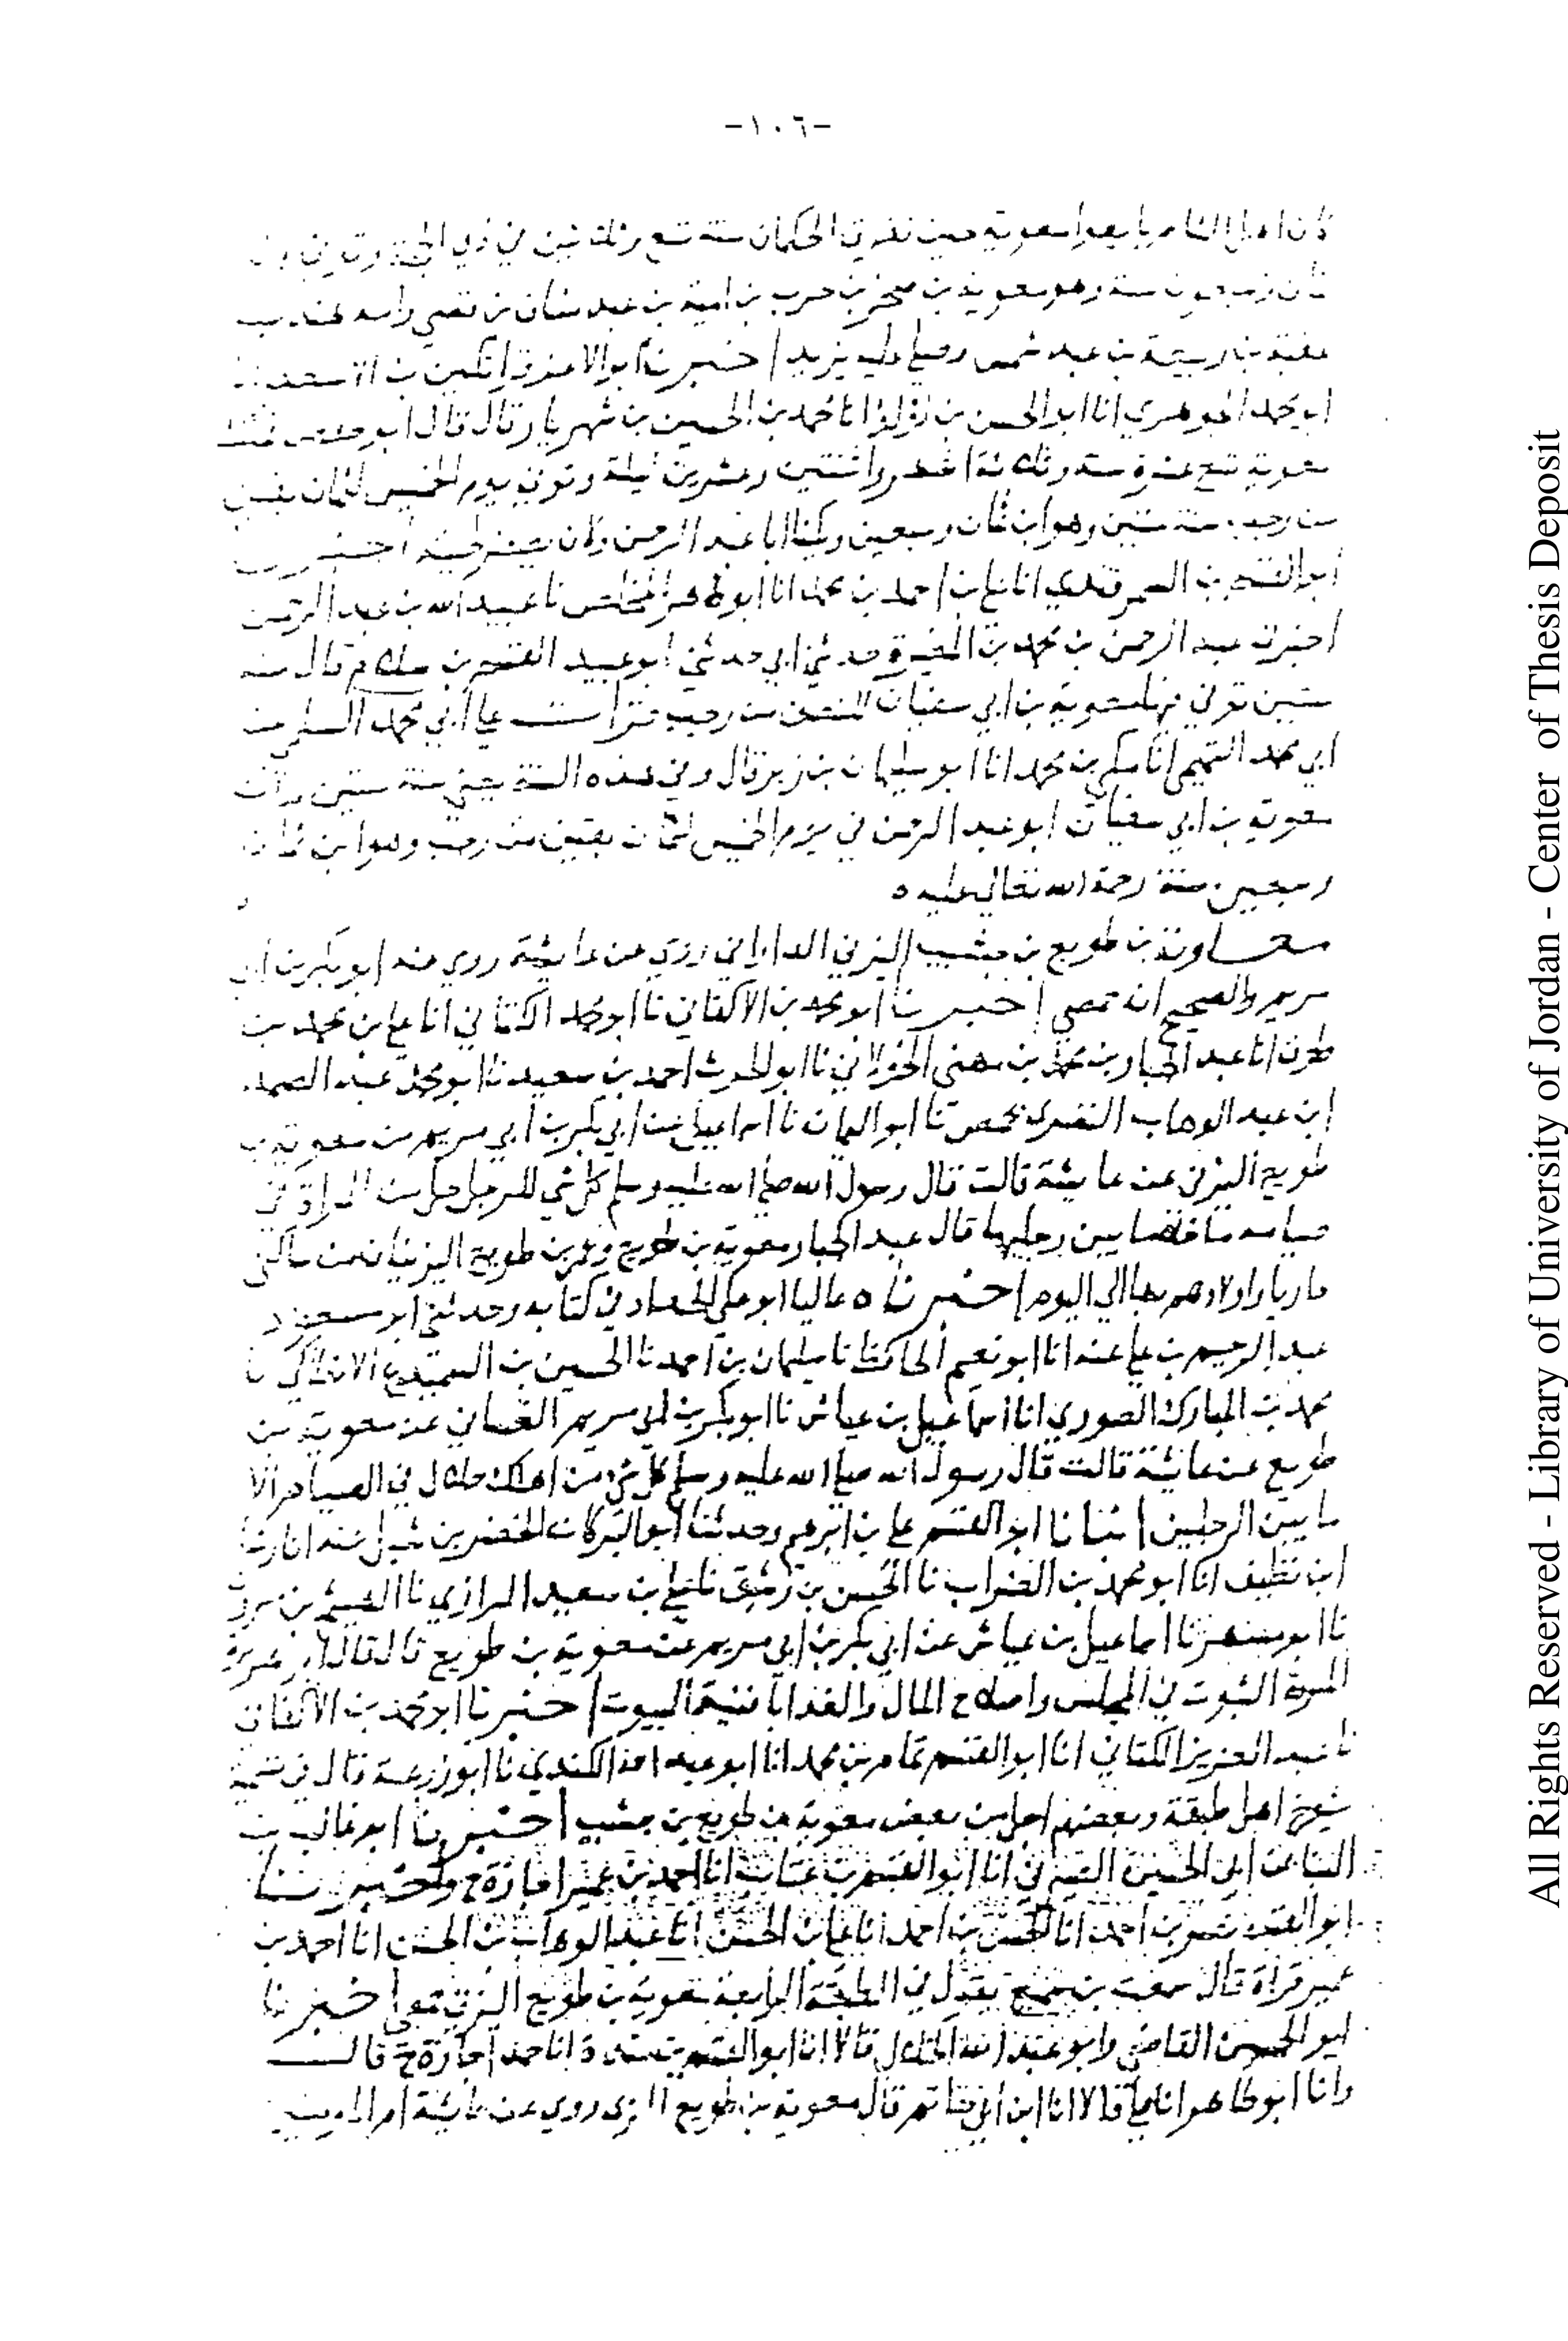 -١٠٦-
كان اهل الشام بايعوا معوية حين تفرق الحكمان سنة تسع وثلاثين في ذي الحجة وتوفي
ثمان وسبعون سنة وهو معوية بن صخر بن حرب بن امية بن عبد مناف بن قصي وامه هند بنت
عتبة بن ربيعة بن عبد شمس وصلى عليه يزيد اخبرنا ابو الاعز قراتكين بن الاسعد انا
ابو محمد الجوهري انا ابو الحسن بن لؤلؤ انا محمد بن الحسين بن شهريار قال قال ابو حفص
معوية تسع عشرة سنة وثلاثة اشهر واثنتين وعشرين ليلة وتوفي يوم الخميس لثمان بقين
من رجب سنة ستين وهو ابن ثمان وسبعين ويكنا ابا عبد الرحمن وكان لحيته اخبرنا
ابو القسم بن السمرقندي انا علي بن احمد بن محمد انا ابو طاهر المخلص نا عبيد الله بن عبد الرحمن
اخبرني عبد الرحمن بن محمد بن المغيرة حدثني ابي حدثني ابو عبيد القسم بن سلام قال سنة
ستين توفي فيها معوية بن ابي سفيان للنصف من رجب قرات على ابي محمد السلمي عن
ابي محمد التميمي انا مكي بن محمد انا ابو سليمان بن زبر قال وفي هذه السنة يعني سنة ستين مات
معوية بن ابي سفيان ابو عبد الرحمن في يوم الخميس لثمان بقين من رجب وهو ابن ثمان
وسبعين سنة رحمة الله تعالى عليه ه
معاوية بن طويع بن جشيب اليزني الداراني روى عن عايشة روى عنه ابو بكر بن ابي
مريم والصحيح انه حمصي اخبرنا ابو محمد بن الاكفاني نا ابو محمد الكتاني انا علي بن محمد بن
طوق انا عبد الجبار بن محمد بن مهنى الخولاني نا ابو الحرث احمد بن سعيد نا ابو محمد عبد الصمد
ابن عبد الوهاب النصري بحمص نا ابو اليمان نا اسماعيل عن ابي بكر بن ابي مريم عن معوية بن
طويع اليزني عن عايشة قالت قال رسول الله صلى الله عليه وسلم كل شي للرجل حل من المراة في
صيامه ما خلا ما بين رجليها قال عبد الجبار ومعوية بن طويع وعمر بن طويع اليزنيان من ساكني
داريا واولادهم بها الى اليوم اخبرناه عاليا ابو علي الحداد في كتابه وحدثني ابو مسعود
عبد الرحيم بن علي عنه انا ابو نعيم الحافظ نا سليمان بن احمد نا الحسين بن السميدع الانطاكي نا
محمد بن المبارك الصوري انا اسماعيل بن عياش نا ابو بكر بن ابي مريم الغساني عن معوية بن
طويع عن عائشة قالت قال رسول الله صلى الله عليه وسلم كل شي من اهلك حلال في الصيام الا
ما بين الرجلين انبانا ابو القسم علي بن ابرهيم وحدثنا ابو البركات الخضر بن شبل عنه انا رشا
ابن نظيف انا ابو محمد بن الضراب نا الحسن بن رشيق نا علي بن سعيد الرازي نا الهيثم بن مروان
نا ابو مسهر نا اسماعيل بن عياش عن ابي بكر بن ابي مريم عن معوية بن طويع قال قال ابو هريرة
المروة الثبوت في المجلس واصلاح المال والغدا بافنية البيوت اخبرنا ابو محمد بن الاكفاني
نا عبد العزيز الكتاني انا ابو القسم تمام بن محمد انا ابو عبد الله الكندي نا ابو زرعة قال في تسمية
شيوخ اهل طبقة وبعضهم اجل من بعض معوية بن طويع بن جشيب اخبرنا ابو غالب بن
البنا عن ابي الحسين انا ابو القسم بن عتاب انا احمد بن عمير اجازة ح واخبرنا
ابو القسم نصر بن احمد انا الحسن بن احمد انا علي بن الحسن انا عبد الوهاب بن الحسن انا احمد بن
عمير قراة قال سمعت بن سميع يقول في الطبقة الرابعة معوية بن طويع اليزني حمصي اخبرنا
ابو الحسين القاضي وابو عبد الله الخلال قالا انا ابو القسم بن مندة انا حمد اجازة ح قال
وانا ابو طاهر انا علي قالا انا ابن ابي حاتم قال معوية بن طويع اليزني روى عن عائشة ام المومنين
All Rights Reserved - Library of University of Jordan - Center of Thesis Deposit